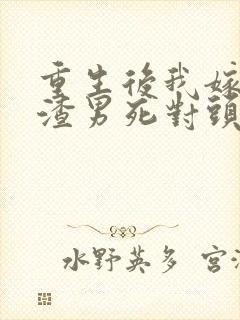 重生後我嫁
渣男死對頭
水野英多 宮